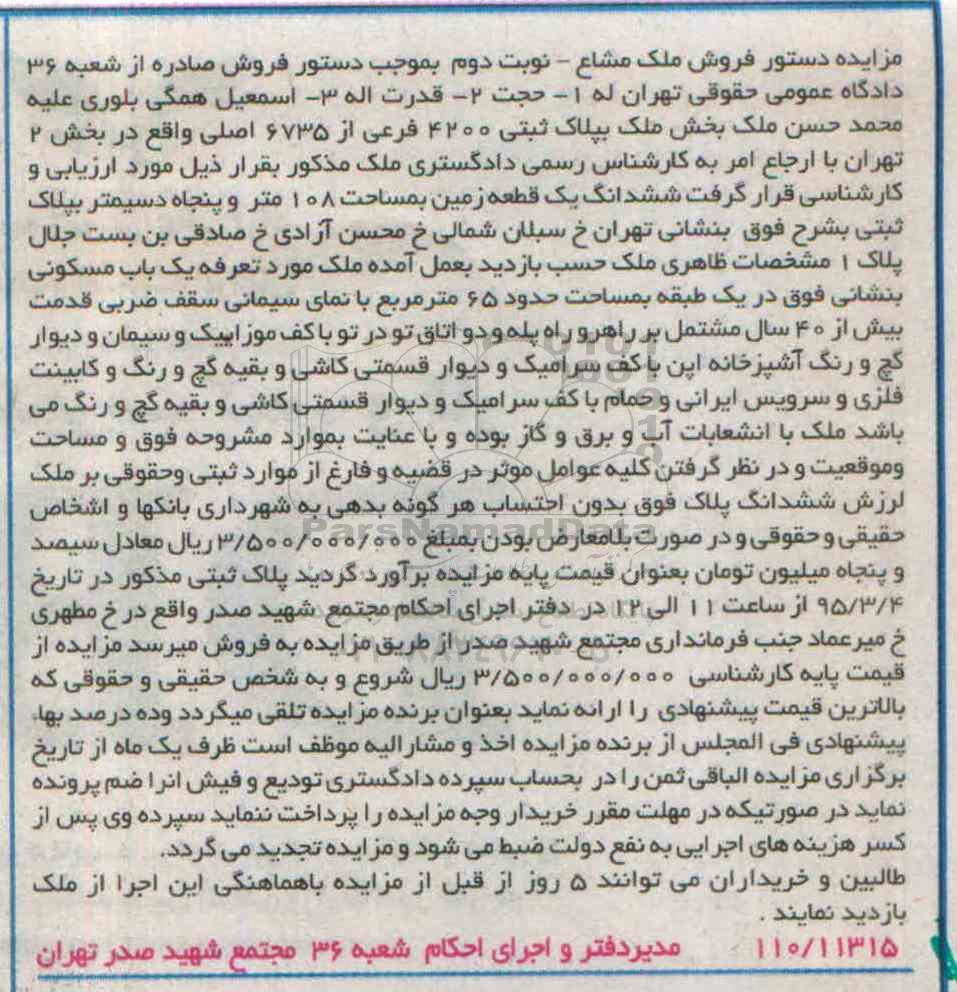 مزایده دستور فروش ملک مشاع - نوبت دوم بموجب دستور فروش صادره از شعبه ۳۶
دادگاه عمومی حقوقی تهران له ۱- حجت ۲- قدرت اله ۳- اسمعیل همگی بلوری علیه
محمد حسن ملک بخش ملک بپلاک ثبتی ۴۲۰۰ فرعی از ۶۷۳۵ اصلی واقع در بخش ۲
تهران با ارجاع امر به کارشناس رسمی دادگستری ملک مذکور بقرار ذیل مورد ارزیابی و
کارشناسی قرار گرفت ششدانگ یک قطعه زمین بمساحت ۱۰۸ متر و پنجاه دسیمتر بپلاک
ثبتی بشرح فوق بنشانی تهران خ سبلان شمالی خ محسن آزادی خ صادقی بن بست جلال
پلاک ۱ مشخصات ظاهری ملک حسب بازدید بعمل آمده ملک مورد تعرفه یک باب مسکونی
بنشانی فوق در یک طبقه بمساحت حدود ۶۵ مترمربع با نمای سیمانی سقف ضربی قدمت
بیش از ۴۰ سال مشتمل بر راهرو راه پله و دو اتاق تو در تو با کف موزاییک و سیمان و دیوار
گچ و رنگ آشپزخانه اپن با کف سرامیک و دیوار قسمتی کاشی و بقیه گچ و رنگ و کابینت
فلزی و سرویس ایرانی و حمام با کف سرامیک و دیوار قسمتی کاشی و بقیه گچ و رنگ می
باشد ملک با انشعابات آب و برق و گاز بوده و با عنایت بموارد مشروحه فوق و مساحت
وموقعیت و در نظر گرفتن کلیه عوامل موثر در قضیه و فارغ از موارد ثبتی وحقوقی بر ملک
لرزش ششدانگ پلاک فوق بدون احتساب هر گونه بدهی به شهرداری بانکها و اشخاص
حقیقی و حقوقی و در صورت بلامعارض بودن بمبلغ ۳/۵۰۰/۰۰۰/۰۰۰ ریال معادل سیصد
و پنجاه میلیون تومان بعنوان قیمت پایه مزایده برآورد گردید پلاک ثبتی مذکور در تاریخ
۹۵/۳/۴ از ساعت ۱۱ الی ۱۲ در دفتر اجرای احکام مجتمع شهید صدر واقع در خ مطهری
خ میرعماد جنب فرمانداری مجتمع شهید صدر از طریق مزایده به فروش میرسد مزایده از
قیمت پایه کارشناسی ۳/۵۰۰/۰۰۰/۰۰۰ ریال شروع و به شخص حقیقی و حقوقی که
بالاترین قیمت پیشنهادی را ارائه نماید بعنوان برنده مزایده تلقی میگردد وده درصد بهای
پیشنهادی فی المجلس از برنده مزایده اخذ و مشارالیه موظف است ظرف یک ماه از تاریخ
برگزاری مزایده الباقی ثمن را در بحساب سپرده دادگستری تودیع و فیش انرا ضم پرونده
نماید در صورتیکه در مهلت مقرر خریدار وجه مزایده را پرداخت ننماید سپرده وی پس از
کسر هزینه های اجرایی به نفع دولت ضبط می شود و مزایده تجدید می گردد.
طالبین و خریداران می توانند ۵ روز از قبل از مزایده باهماهنگی این اجرا از ملک
بازدید نمایند .
۱۱۰/۱۱۳۱۵ مدیردفتر و اجرای احکام شعبه ۳۶ مجتمع شهید صدر تهران
ParsNamadData